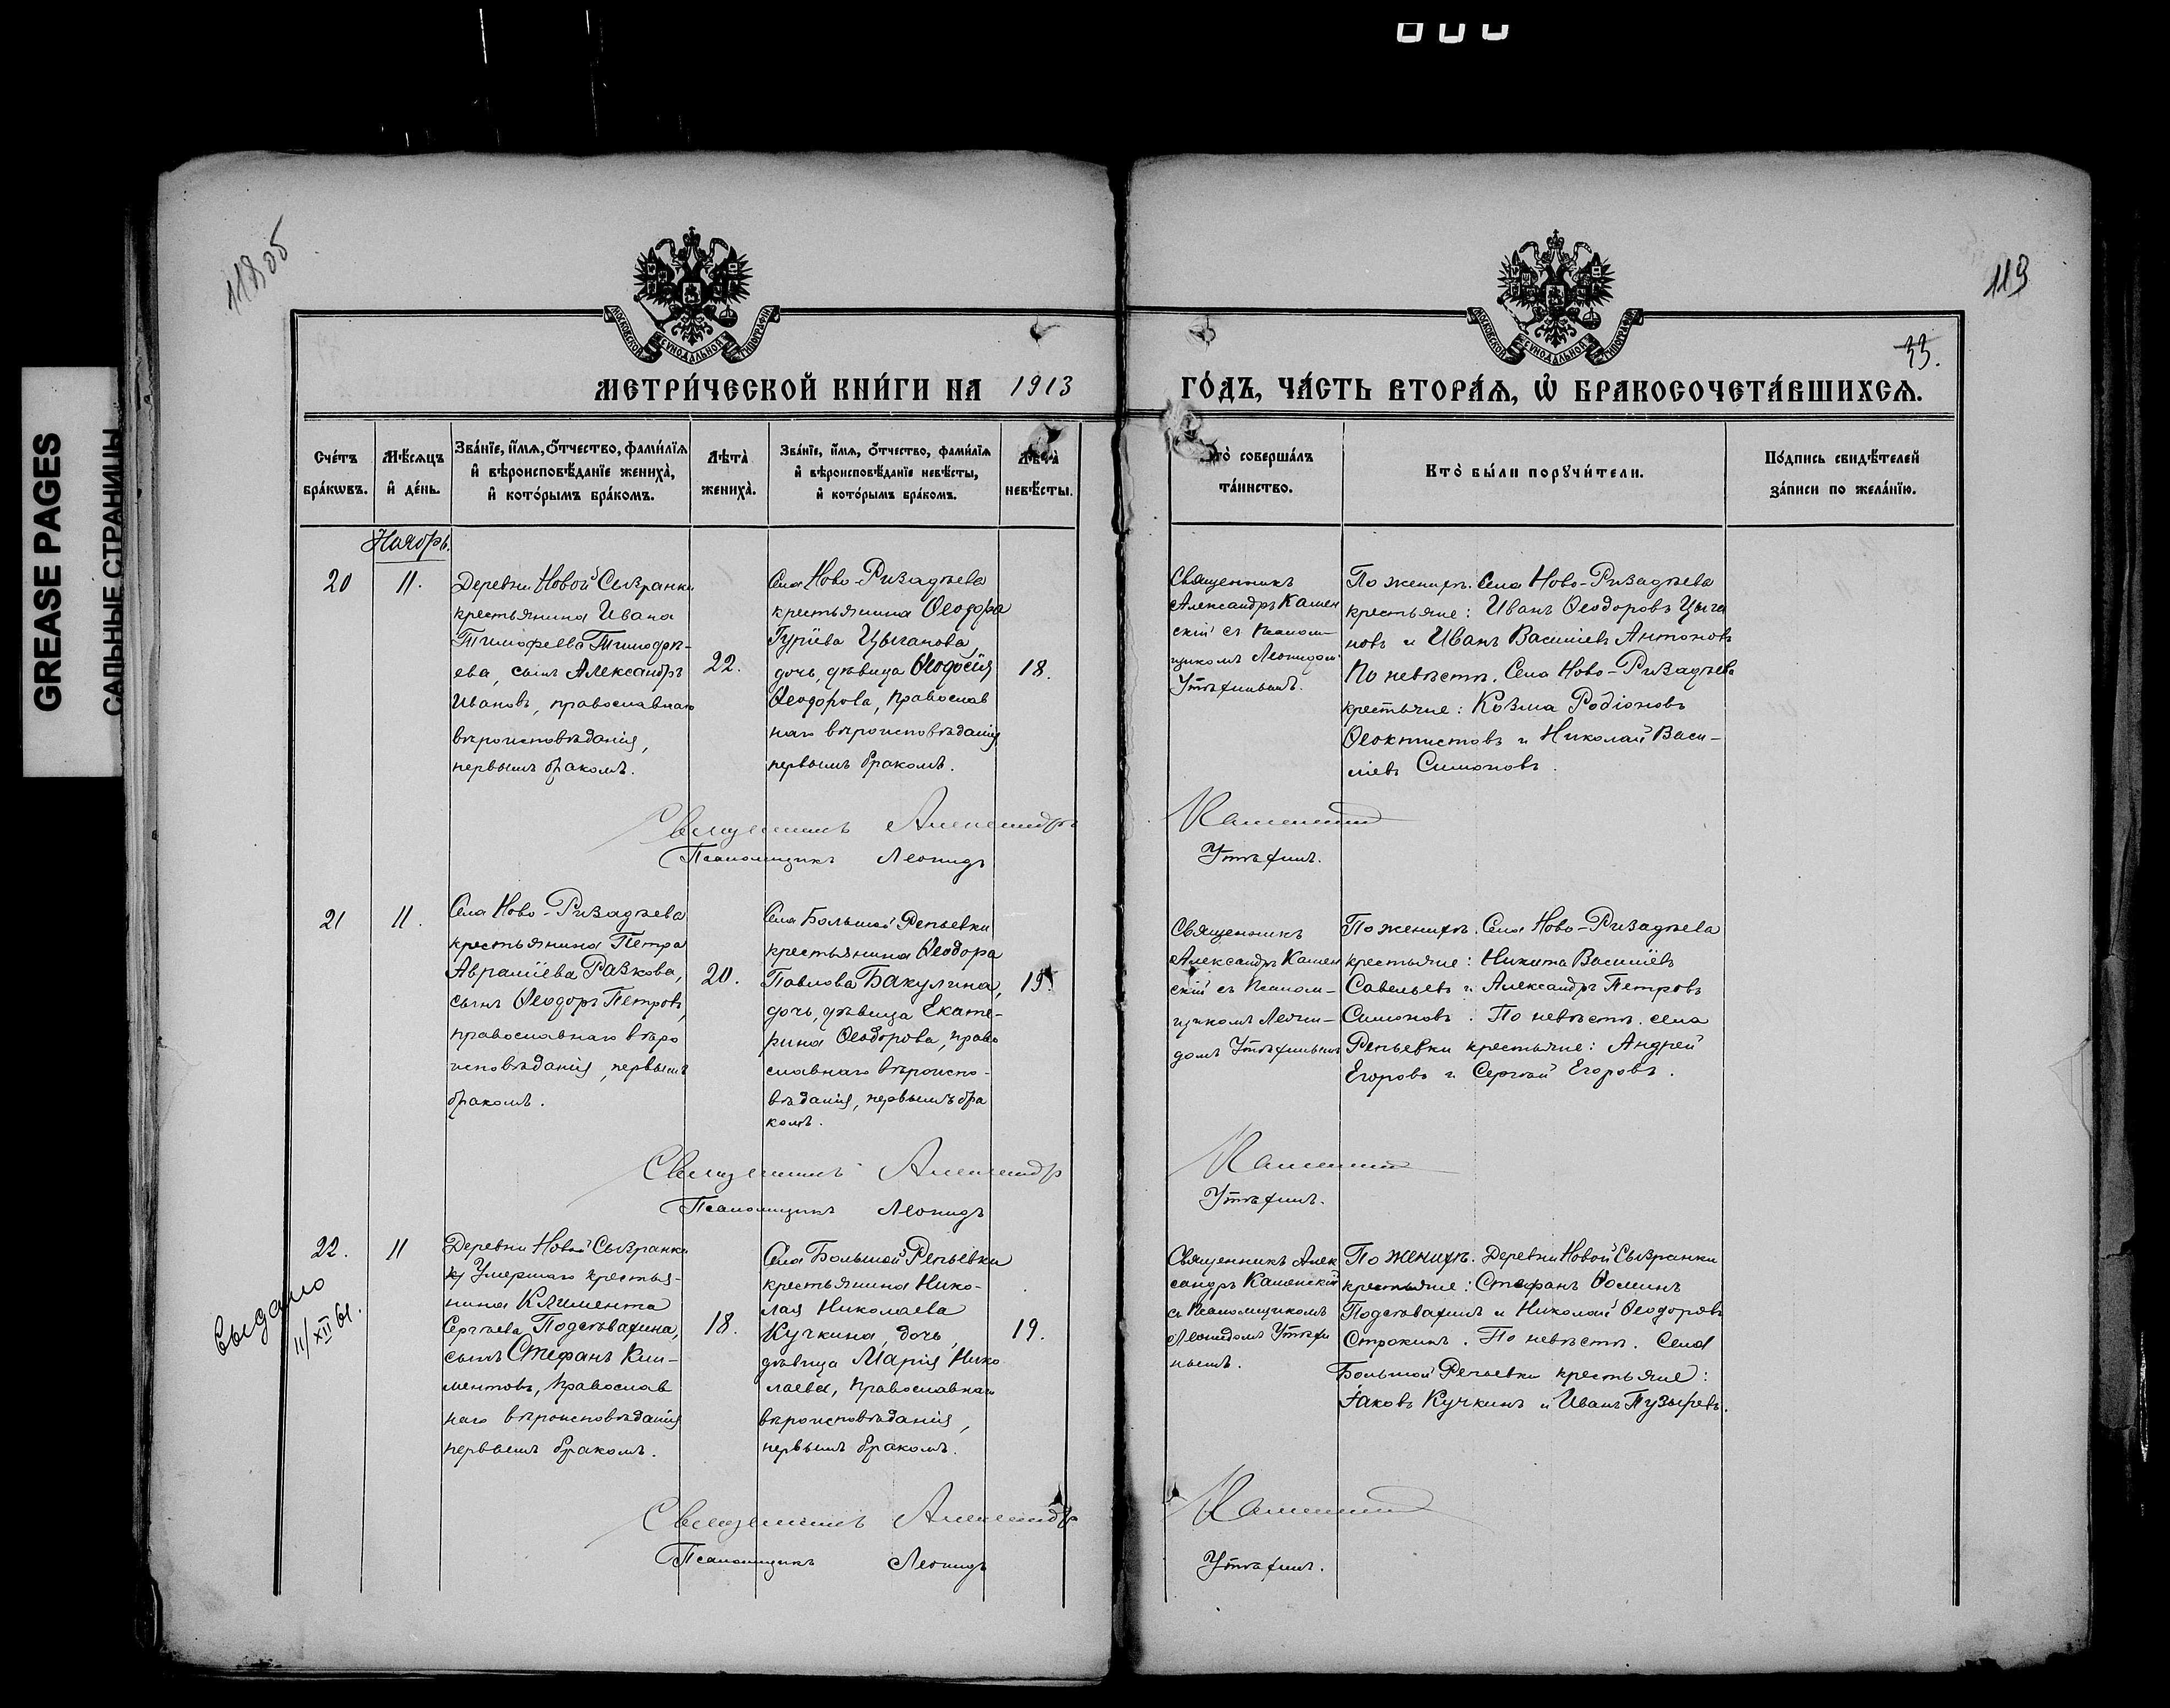 GREASE PAGES
САЛЬНЫЕ СТРАНИЦЫ
118об
119
33.
МОСКОВСКОЙ СѴНОДАЛЬНОЙ ТИПОГРАФІИ
МОСКОВСКОЙ СѴНОДАЛЬНОЙ ТИПОГРАФІИ
МЕТРИ́ЧЕСКОЙ КНИ́ГИ НА 1913 ГО́ДЪ, ЧА́СТЬ ВТОРА́Я, Ѡ БРАКОСОЧЕТА́ВШИХСЯ.
Сче́тъ
бра́кѡвъ.
Мѣ́сяцъ
и҆ де́нь.
Зва́нїе, и҆́мя, ѻ҆́тчество, фами́лїя
и҆ вѣроисповѣ́данїе жениха̀,
и҆ кото́рымъ бра́комъ.
Лѣта̀
жениха̀.
Зва́нїе, и҆́мя, ѻ҆́тчество, фами́лїя
и҆ вѣроисповѣ́данїе невѣ́сты,
и҆ кото́рымъ бра́комъ.
Лѣта̀
невѣ́сты.
Кто̀ соверша́лъ
та́инство.
Кто̀ бы́ли порꙋчи́тели.
По́дпись свидѣ́телей
за́писи по жела́нїю.
Ноябрь.
20
11.
Деревни Новой Сызранки
крестьянина Ивана
Тимофеева Тимофѣ-
ева, сынъ Александръ
Ивановъ, православнаго
вѣроисповѣданія,
первымъ бракомъ.
22.
Села Ново-Ризадѣева
крестьянина Ѳеодора
Гуріева Цыганова,
дочь, дѣвица Ѳеодосія
Ѳеодорова, православ
наго вѣроисповѣданія
первымъ бракомъ.
18.
Священникъ
Александръ Камен
скій съ псалом-
щикомъ Леонидом
Утѣхинымъ.
По женихѣ. Села Ново-Ризадѣева
крестьяне: Иванъ Ѳеодоровъ Цыга
новъ и Иванъ Васильевъ Антоновъ
По невѣстѣ. Села Ново-Ризадѣева
крестьяне: Козма Родіоновъ
Ѳеоктистовъ и Николай Васи-
льевъ Симоновъ.
Священникъ Александръ Каменскій
Псаломщикъ Леонидъ Утѣхинъ.
21
11.
Села Ново-Ризадѣева
крестьянина Петра
Авраміева Разкова,
сынъ Ѳеодоръ Петровъ,
православнаго вѣро
исповѣданія, первымъ
бракомъ.
20.
Села Большой Репьевки
крестьянина Ѳеодора
Павлова Бакулина,
дочь, дѣвица Екате-
рина Ѳеодорова, право
славнаго вѣроиспо-
вѣданія, первымъ бра
комъ.
19.
Священникъ
Александръ Камен
скій съ псалом-
щикомъ Леони-
домъ Утѣхинымъ
По женихѣ. Села Ново-Ризадѣева
крестьяне: Никита Васильевъ
Савельевъ и Александръ Петровъ
Симоновъ. По невѣстѣ. села
Репьевки крестьяне: Андрей
Егоровъ и Сергѣй Егоровъ.
Священникъ Александръ Каменскій
Псаломщикъ Леонидъ Утѣхинъ.
22.
11
Выдано
11/XII 61.
Деревни Новой Сызранки
Умершаго крестья-
нина Климента
Сергѣева Подсѣвахина,
сынъ Стефанъ Кли-
ментовъ, православ
наго вѣроисповѣданія
первымъ бракомъ.
18.
Села Большой Репьевки
крестьянина Нико-
лая Николаева
Кучкина, дочь,
дѣвица Марія Нико
лаева, православнаго
вѣроисповѣданія,
первымъ бракомъ.
19.
Священникъ Алек
сандръ Каменскій
съ псаломщикомъ
Леонидомъ Утѣхи
нымъ.
По женихѣ. Деревни Новой Сызранки
крестьяне: Стефанъ Ѳоминъ
Подсѣвахинъ и Николай Ѳеодоровъ
Строкинъ. По невѣстѣ. Села
Большой Репьевки крестьяне:
Іаковъ Кучкинъ и Иванъ Пузыревъ.
Священникъ Александръ Каменскій
Псаломщикъ Леонидъ Утѣхинъ.